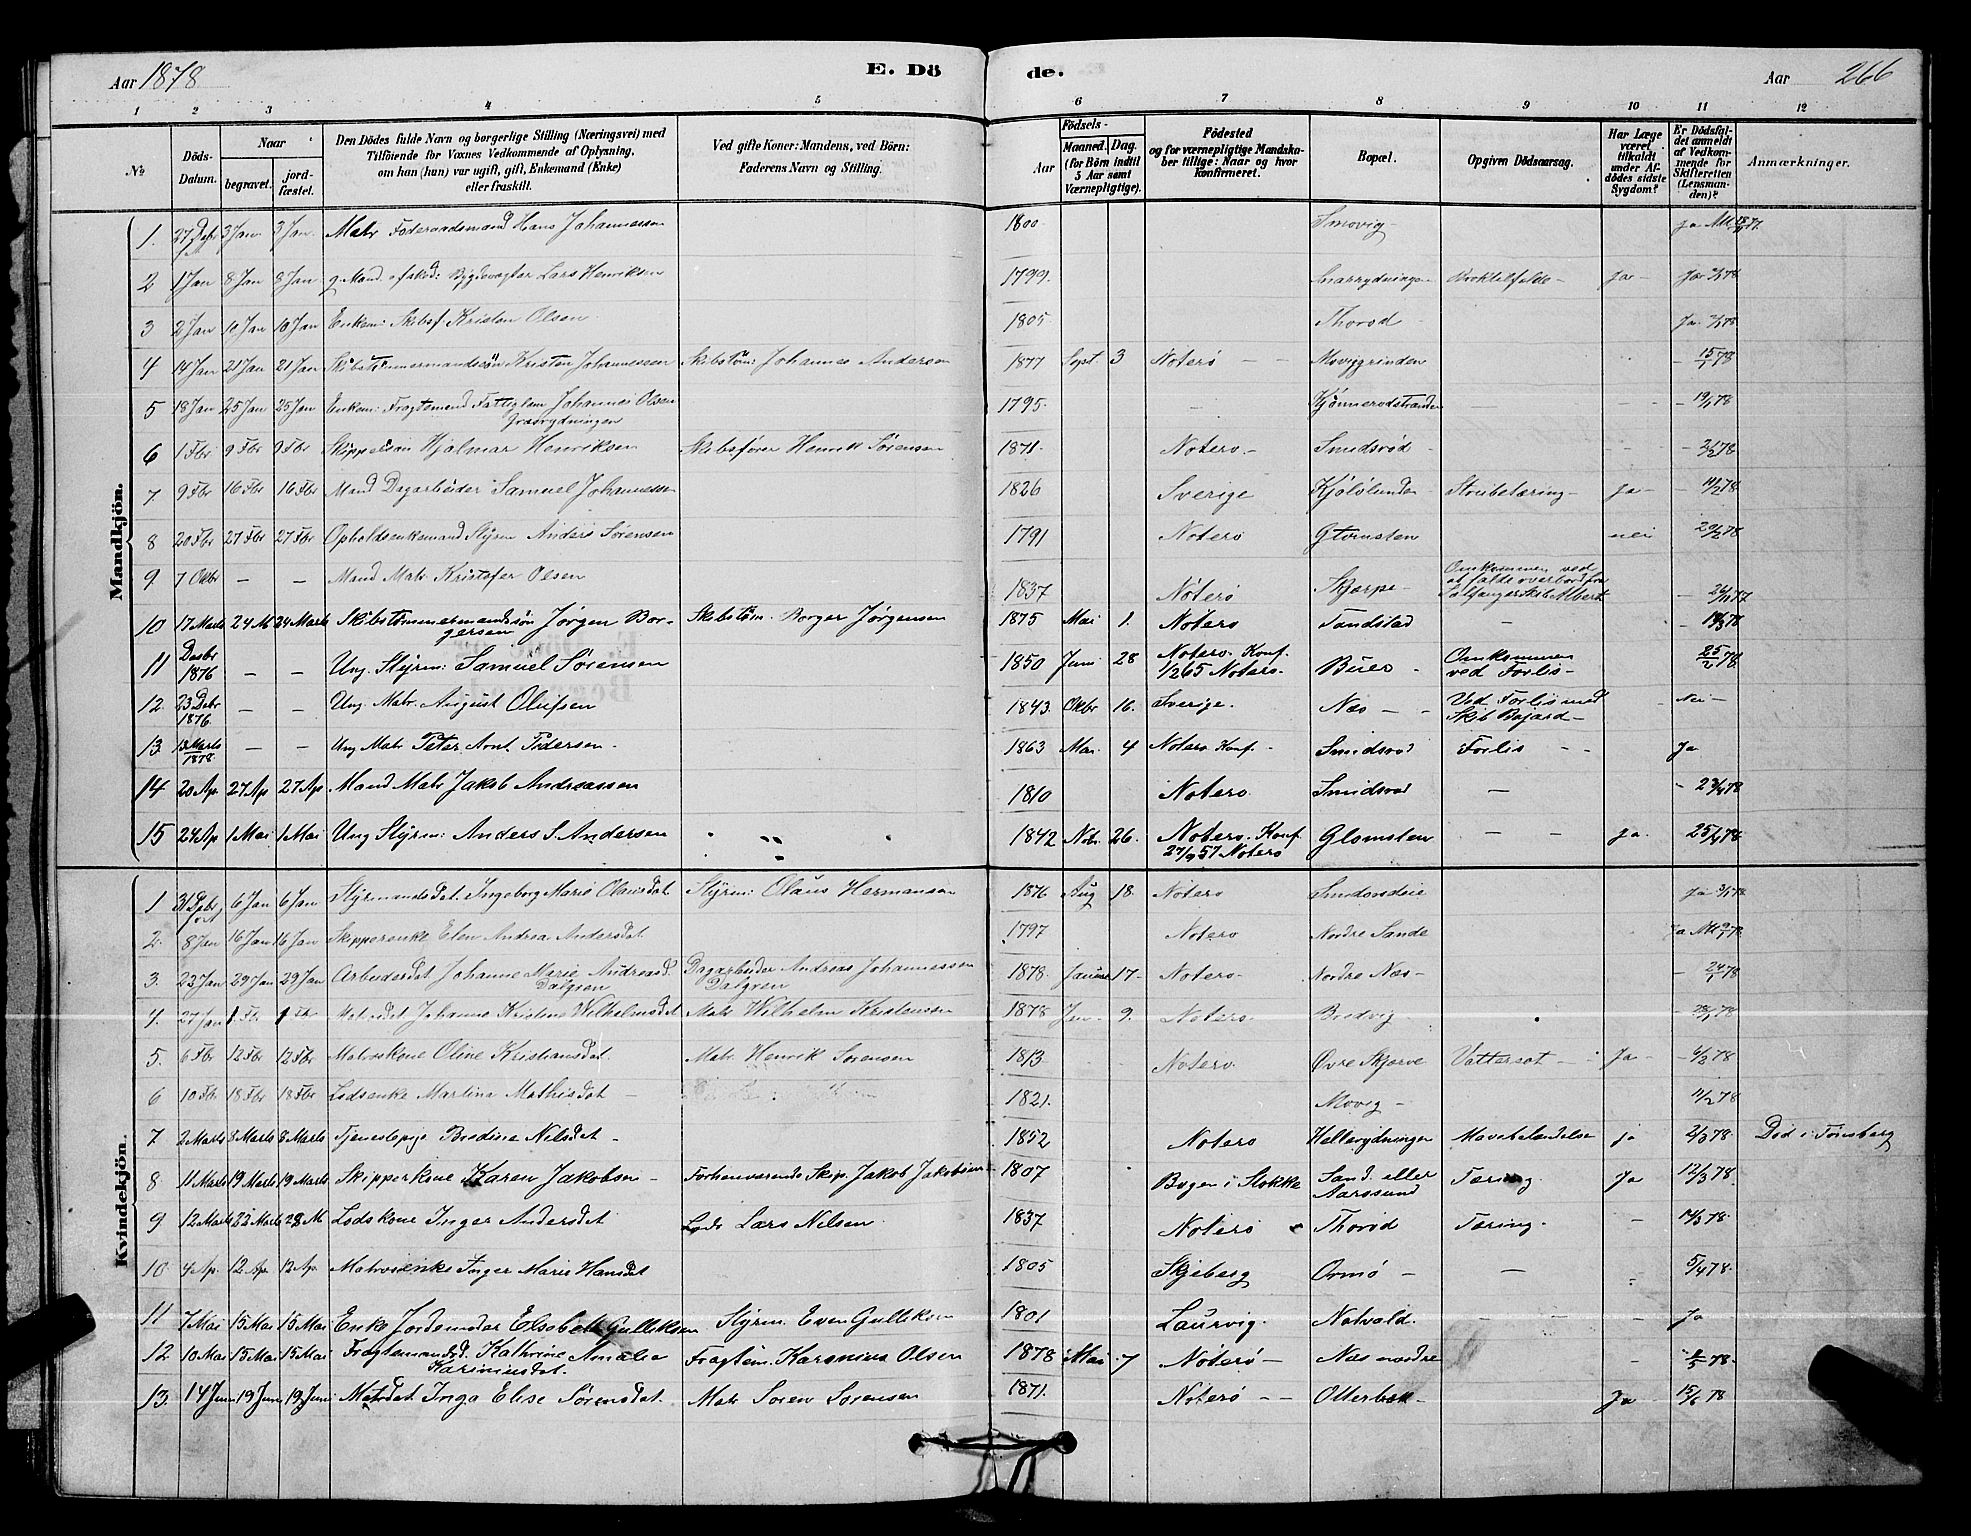 Aar 1878 E. Dö de. Aar 266
1 2 3 4 5 6 7 8 9 10 11 12
№ Döds-Datum. Naar begravet. jordfæstet. Den Dödes fulde Navn og borgerlige Stilling (Næringsvei) med Tilföiende for Voxnes Vedkommende af Oplysning, om han (hun) var ugift, gift, Enkemand (Enke) eller fraskilt. Ved gifte Koner: Mandens, ved Börn: Faderens Navn og Stilling. Födsels- Aar Maaned. Dag. (for Börn indtil 5 Aar samt Værnepligtige). Födested og for værnepligtige Mandskaber tillige: Naar og hvor konfirmeret. Bopæl. Opgiven Dödsaarsag. Har Læge været tilkaldt under Afdödes sidste Sygdom? Er Dödsfaldet anmeldt af Vedkommende for Skifteretten (Lensmanden)? Anmærkninger.
Mandkjön.
1. 27 Debr 3 Jan 3 Jan. Matr Föderaadsmand Hans Johannessen 1800 Smovig ja
2 1 Jan 8 Jan 8 Jan g Mand Bygdevægter Lars Henriksen 1799. Broktilfælde ja
3 2 Jan 10 Jan 10 Jan Enkem: Skibsf. Kristen Olsen 1805 Thorød Ja
4 14 Jan 21 Jan 21 Jan Skibstömmermandssön Kristen Johannessen Skibstöm: Johannes Andersen 1877 Sept 3 Noterø Moviggrinden 15/1 78
5 18 Jan 25 Jan 25 Jan Enkem: Fragtemand Fattiglem Johannes Olsen Græsrydningen 1795. Kjønnerødstranden 19/1 78
6 1 Fbr 9 Fbr 9 Fbr Skippersön Hjalmar Henriksen Skibsfører Henrik Sørensen 1871. Noterø Smidsrød 2/2 78
7 9 Fbr 16 Fbr 16 Fbr Mand Dagarbeider Samuel Johannessen 1826 Sverige Kjølølunden Strubetæring ja
8 20 Fbr 27 Fbr 27 Fbr Opholdsenkemand Styrm Anders Sørensen 1791 Noterø Glomsten nei 20/2 78
9 7 Okbr — — Mand Matr Kristofer Olsen 1837 Nøterø Skjerpe Omkommen ved at falde overbord fra Sælfangerskib Albert
10 17 Marts 24 M 24 Marts Skibstömmermandssön Jørgen Borgersen Skibstöm. Borger Jørgensen 1875 Mai 1. Noterø Tandstad —
11 Desbr 1876 — — Ung. Styrm: Samuel Sørensen 1850 Juni 28 Noterø. Konf. 1/2 65 Noterø. Buer Omkommen ved Forlis 25/2 78
12. 23 Debr 1876 — — Ung. Matr. August Olufsen 1843. Okbr 16. Sverige. Næs Ved Forlis med Skib Bajard Nei
13. 13 Marts 1878 — — Ung Matr Peter Arnt Pedersen. 1863 Mai 4 Noterø Konf. Smidsrød Forlis Ja
14 20 Ap. 27 Ap 27 Ap Mand Matr Jakob Andreassen 1810 Noterø Smidsrød —
15 24 Ap 1 Mai 1 Mai Ung Styrm: Anders S. Andersen 1842 Nobr. 26. Noterø. Konf 27/9 57 Noterø Glomsten ja 25/4 78
Kvindekjön.
1 31 Debr 6 Jan 6 Jan Styrmandsdat. Ingeborg Marie Olausdat Styrm: Olaus Hermansen 1876 Aug 18. Noterø Smidsrødeie Ja
2. 8 Jan 16 Jan 16 Jan Skipperenke Elen Andrea Andersdat 1797 Noterø Nordre Sande
3. 22 Jan 29 Jan 29 Jan Arbeiderdat Johanne Marie Andreasd. Dalgren Dagarbeider Andreas Johannessen Dalgren 1878. Januar 17. Noterø Nordre Næs 24/1 78
4. 27 Jan 1 Fbr 1 Fbr Matrsdat Johanne Kristine Wilhelmsdat Matr Wilhelm Kristensen 1878 Jan. 9. Noterø Bredvig
5. 6 Fbr 12 Fbr 12 Fbr Matroskone Oline Kristiansdat. Matr. Henrik Sørensen 1813. Noterø Øvre Skjerve Vattersot Ja 6/2 78
6 10 Fbr 18 Fbr 18 Fbr Lodsenke Martina Mathisdat 1821. Movig 11/2 78
7 2 Marts 8 Marts 8 Marts Tjenestepige Bredine Nilsdat 1852 Noterø Holterydningen Mavebetændelse ja 2/3 78 Död i Tönsberg
8 11 Marts 19 Marts 19 Marts Skipperkone Karen Jakobsen Forhenværende Skip. Jakob Jakobsen 1807 Bogen i Stokke Sand. eller Aarssund Tæring. ja 12/3 78.
9 12 Marts 22 Marts 22 M Lodskone Inger Andersdat Lods Lars Nilsen 1837 Noterø Thorød Tæring. 14/3 78.
10 4 Ap. 12 Ap. 12 Ap. Matrosenke Inger Marie Hansdat 1805 Skjeberg Ormø — 5/4 78.
11 7 Mai 15 Mai 15 Mai Enke Jordemoder Elsebeth Gulliksen Styrm. Even Gulliksen 1801 Laurvig. Natvald. Ja
12 10 Mai 15 Mai 15 Mai Fragtemandsd. Kathrine Amalie Kariniusdat. Fragtem. Karenius Olsen 1878 Mai 7 Noterø Næs nordre
13. 14 Juni 19 Juni 19 Juni Matrdat Inga Elise Sørensdat. Matr Søren Sørensen 1871. Noterø Otterbæk Ja 15/6 78